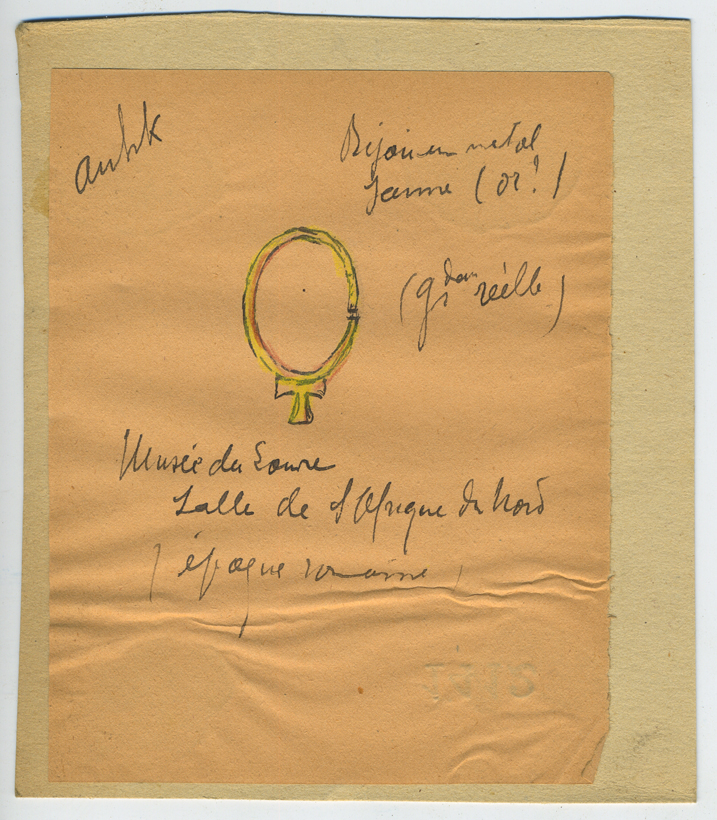 ankh
Bijou en métal
Jaune (or ?)
(gr deur réelle)
Musée du Louvre
Salle de l'Afrique du Nord
(époque romaine)